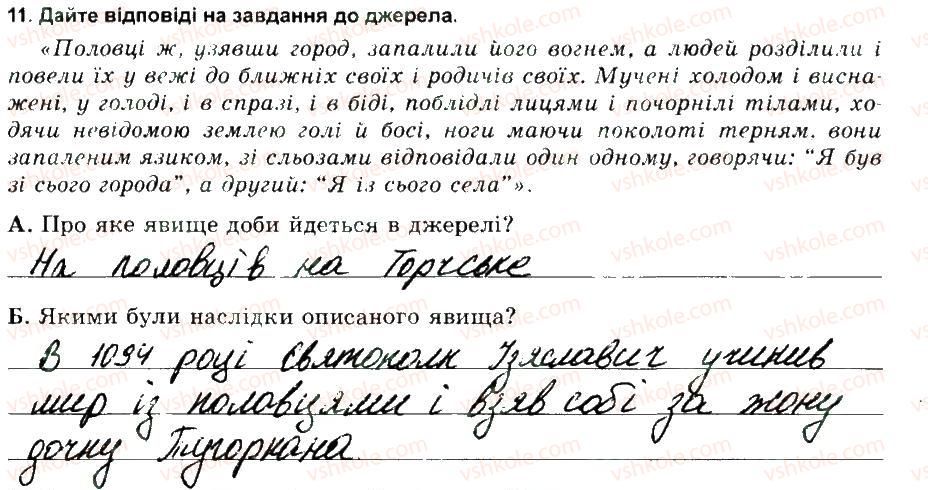 11. Дайте відповіді на завдання до джерела.
«Половці ж, узявши город, запалили його вогнем, а людей розділили і
повели їх у вежі до ближніх своїх і родичів своїх. Мучені холодом і висна-
жені, у голоді, і в спразі, і в біді, поблідлі лицями і почорнілі тілами, хо-
дячи невідомою землею голі й босі, ноги маючи поколоті терням, вони
запаленим язиком, зі сльозами відповідали один одному, говорячи: “Я був
зі сього города”, а другий: “Я із сього села”».
А. Про яке явище доби йдеться в джерелі?
На половців на Торчське
Б. Якими були наслідки описаного явища?
В 1094 році Святополк Ізяславич учинив
мир із половцями і взяв собі за жону
дочку Тугоркана